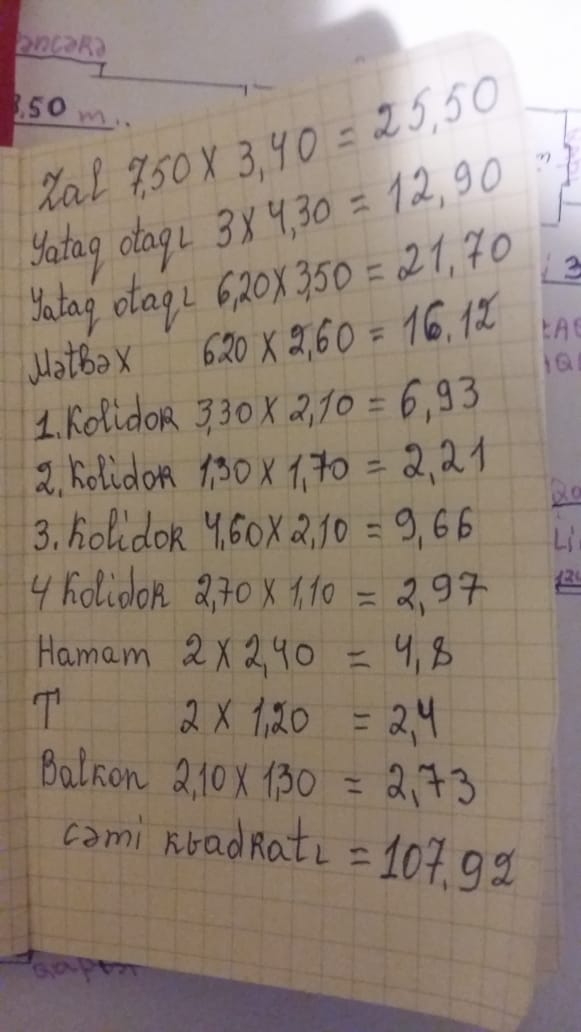 əncərə
3.50 m..
Zal 7,50 x 3,40 = 25,50
Yataq otaqı 3 x 4,30 = 12,90
Yataq otaqı 6,20 x 3,50 = 21,70
Mətbəx 620 x 2,60 = 16,12
1. Kolidor 3,30 x 2,10 = 6,93
2, Kolidor 1,30 x 1,70 = 2,21
3. Kolidor 4,60 x 2,10 = 9,66
4 Kolidor 2,70 x 1,10 = 2,97
Hamam 2 x 2,40 = 4,8
T 2 x 1,20 = 2,4
Balkon 2,10 x 1,30 = 2,73
cəmi kvadratı = 107,92